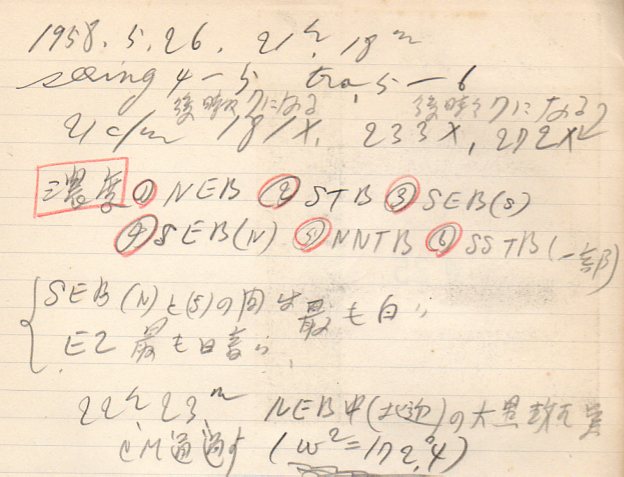 1958. 5. 26. 21h 18m
seeing 4-5 tra. 5-6
後時々7になる 後時々7になる
21c/m 181X, 233X, 272X
濃度 ① NEB ② STB ③ SEB(S)
④ SEB(N) ⑤ NNTB ⑥ SSTB(一部)
SEB(N)と(S)の間は最も白い
EZ最も暗い
22h 23m NEB中(北辺)の大暗斑
CM通過す (ω²=172.°4)